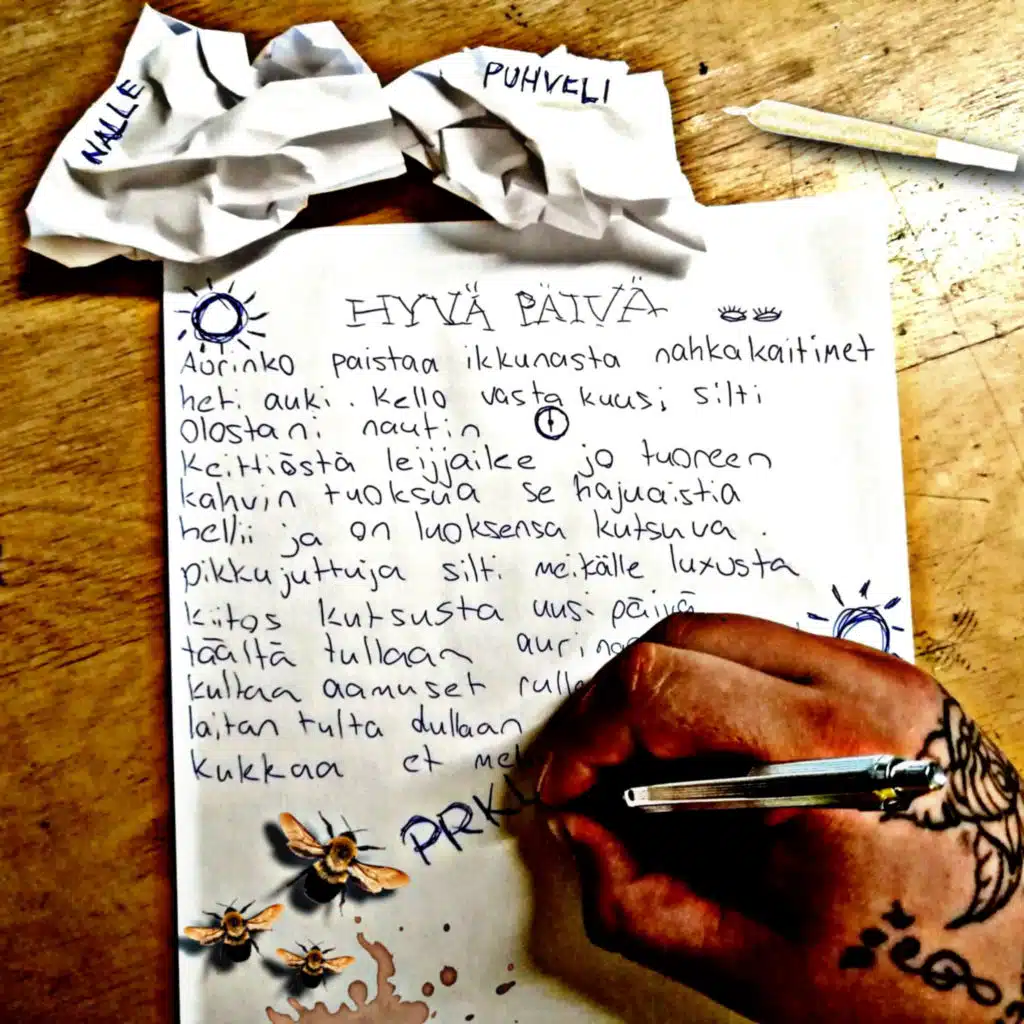 NALLE
PUHVELI
HYVÄ PÄIVÄ
Aurinko paistaa ikkunasta nahkakaitimet
heti auki. Kello vasta kuusi silti
olostani nautin
Keittiöstä leijjailee jo tuoreen
kahvin tuoksua se hajuaistia
hellii ja on luoksensa kutsuva.
pikkujuttuja silti meikälle luxusta
kiitos kutsusta uusi päivä
täältä tullaan
kultaa aamuset
laitan tulta dullaan
kukkaa et